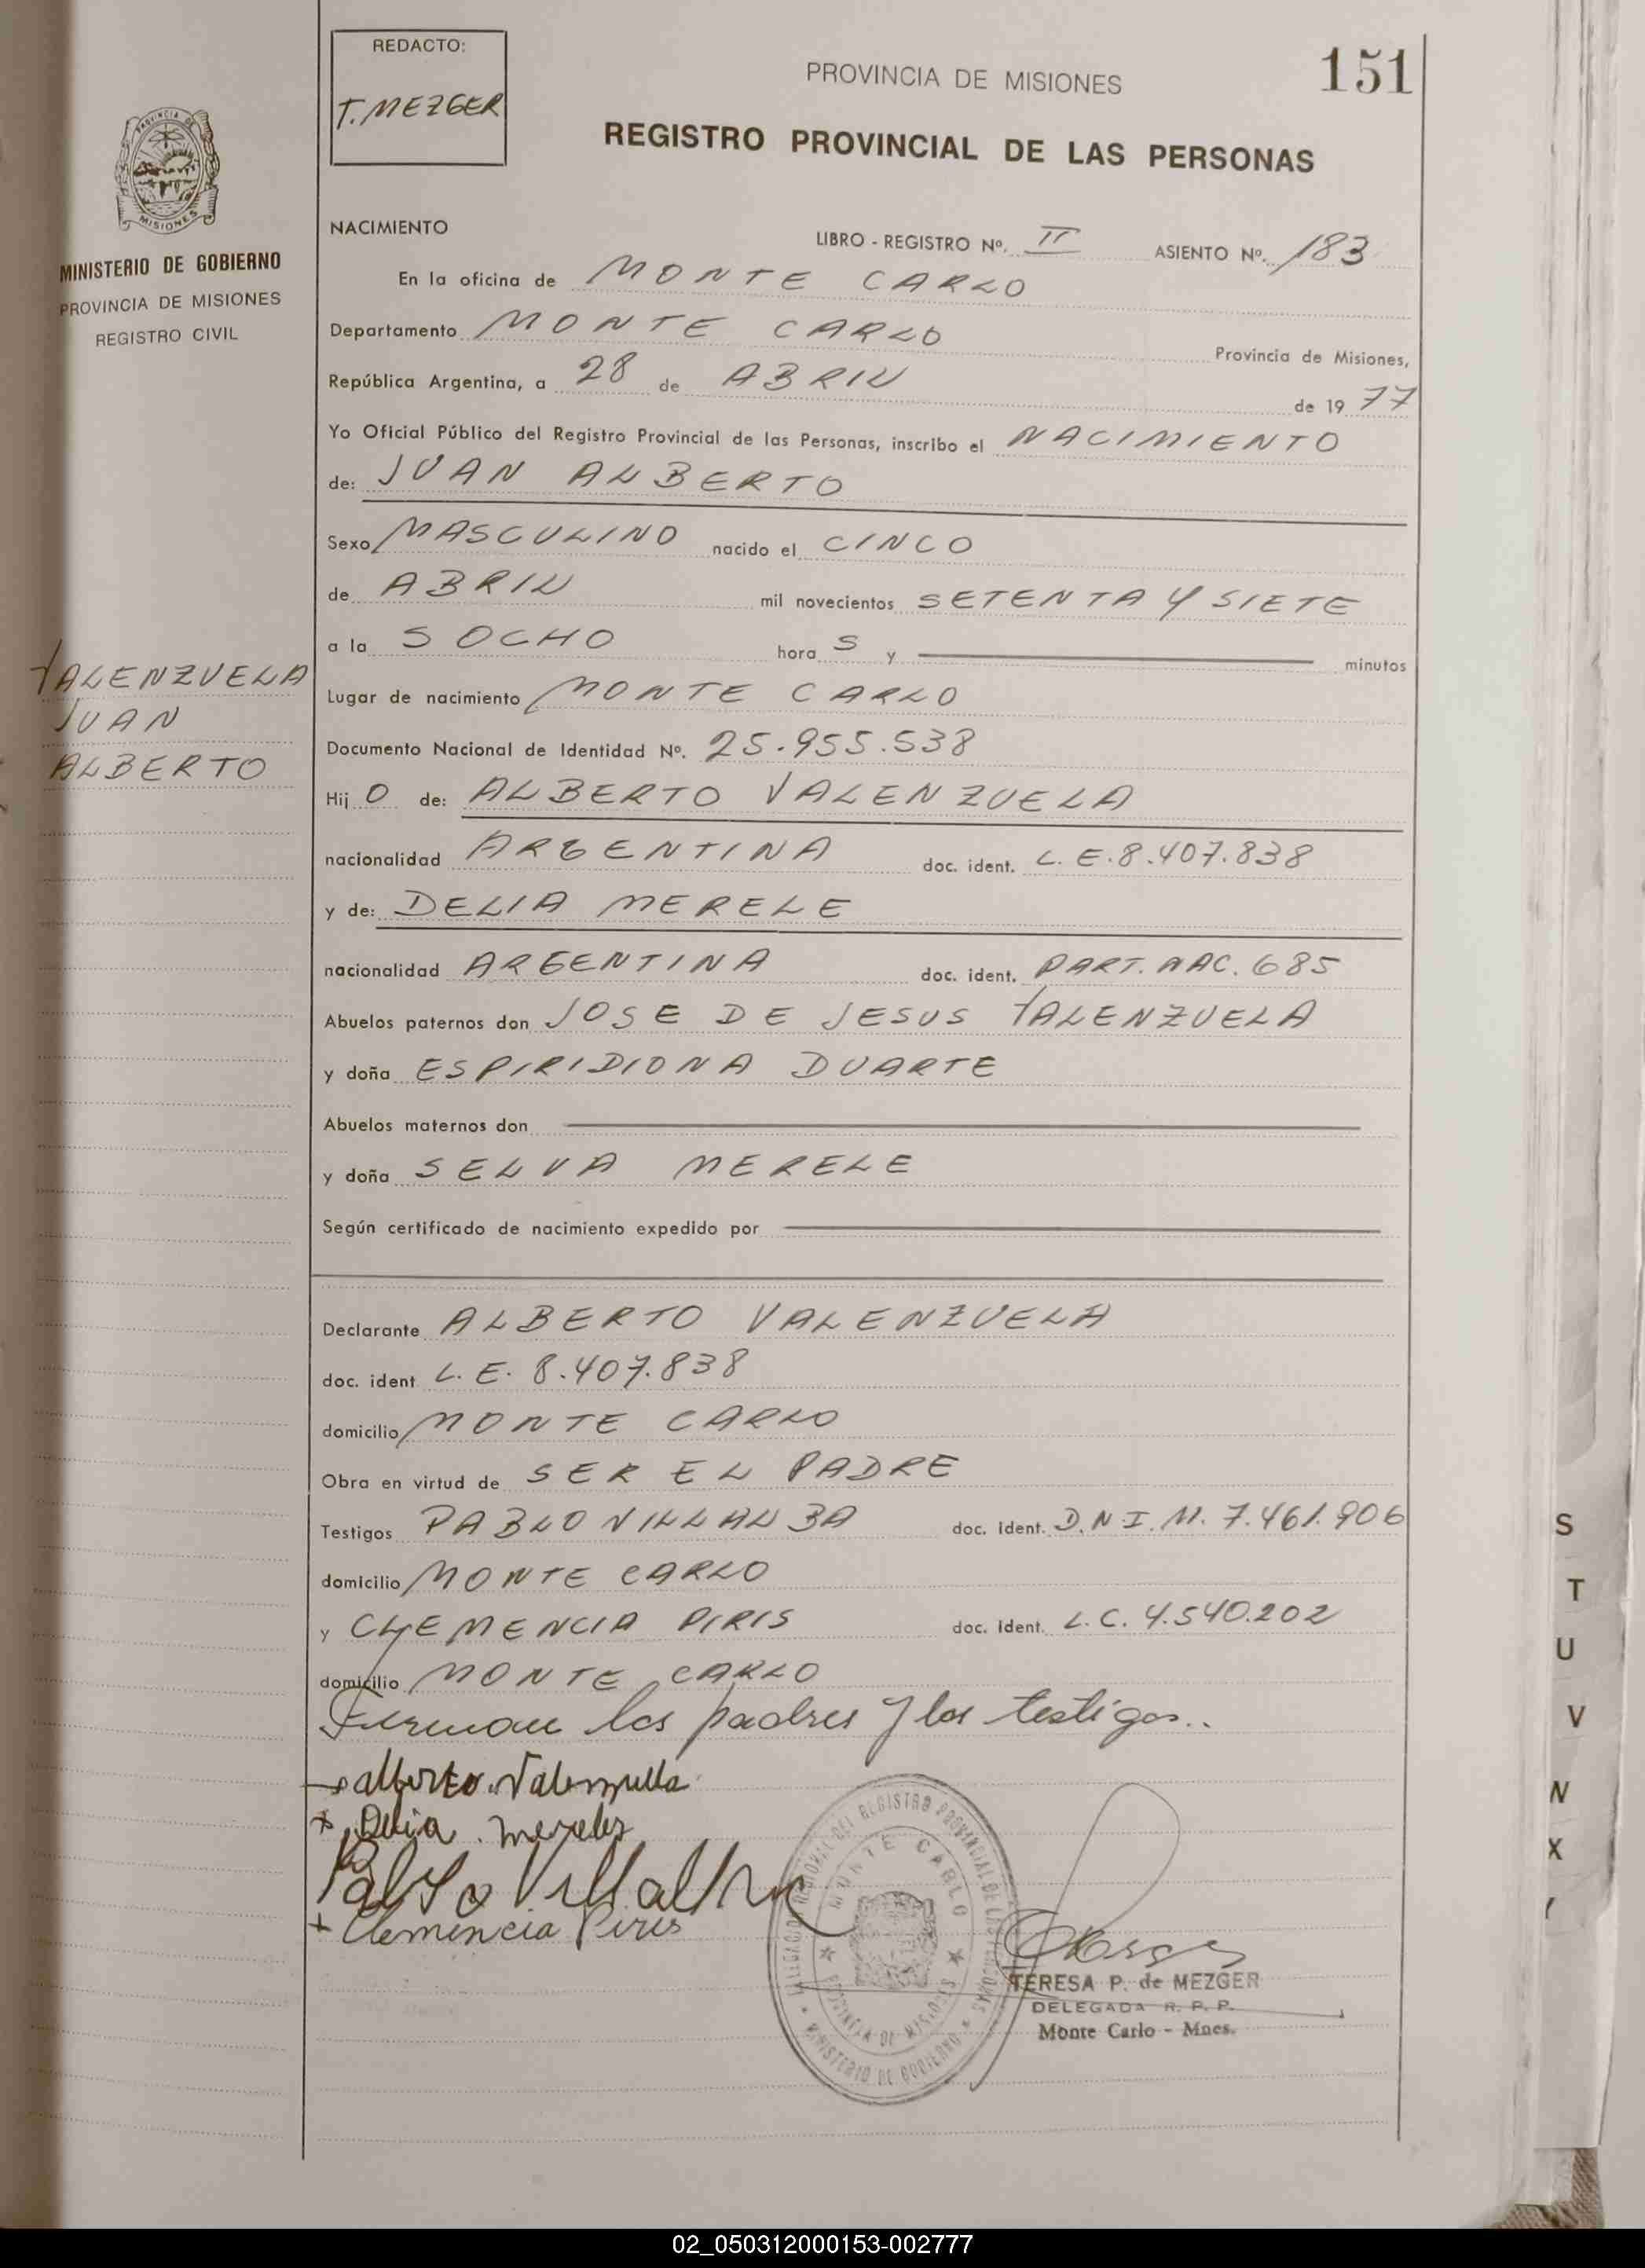 REDACTO:
T. MEZGER
PROVINCIA DE MISIONES
151
REGISTRO PROVINCIAL DE LAS PERSONAS
MISIONES
MINISTERIO DE GOBIERNO
PROVINCIA DE MISIONES
REGISTRO CIVIL
NACIMIENTO
LIBRO - REGISTRO Nº. II ASIENTO Nº. 183
En la oficina de MONTE CARLO
Departamento MONTE CARLO Provincia de Misiones,
República Argentina, a 28 de ABRIL de 19 77
Yo Oficial Público del Registro Provincial de las Personas, inscribo el NACIMIENTO
de: JUAN ALBERTO
Sexo MASCULINO nacido el CINCO
de ABRIL mil novecientos SETENTA Y SIETE
a la S OCHO hora S y minutos
VALENZUELA
JUAN
ALBERTO
Lugar de nacimiento MONTE CARLO
Documento Nacional de Identidad Nº. 25.955.538
Hij O de: ALBERTO VALENZUELA
nacionalidad ARGENTINA doc. ident. L. E. 8.407.838
y de: DELIA MERELE
nacionalidad ARGENTINA doc. ident. PART. NAC. 685
Abuelos paternos don JOSE DE JESUS VALENZUELA
y doña ESPIRIDIONA DUARTE
Abuelos maternos don
y doña SELVA MERELE
Según certificado de nacimiento expedido por
Declarante ALBERTO VALENZUELA
doc. ident L. E. 8.407.838
domicilio MONTE CARLO
Obra en virtud de SER EL PADRE
Testigos PABLO VILLALBA doc. Ident. D.N.I. M. 7.461.906
domicilio MONTE CARLO
y CLEMENCIA PIRIS doc. Ident. L. C. 4.540.202
domicilio MONTE CARLO
Firman los padres y los testigos..
Alberto Valenzuela
x Delia Mereles
Pablo Villalba
+ Clemencia Piris
DELEGACION REGIONAL DEL REGISTRO PROVINCIAL DE LAS PERSONAS
MONTE CARLO
PROVINCIA DE MISIONES
MINISTERIO DE GOBIERNO
TERESA P. de MEZGER
DELEGADA R. P. P.
Monte Carlo - Mnes.
S
T
U
V
X
02_050312000153-002777